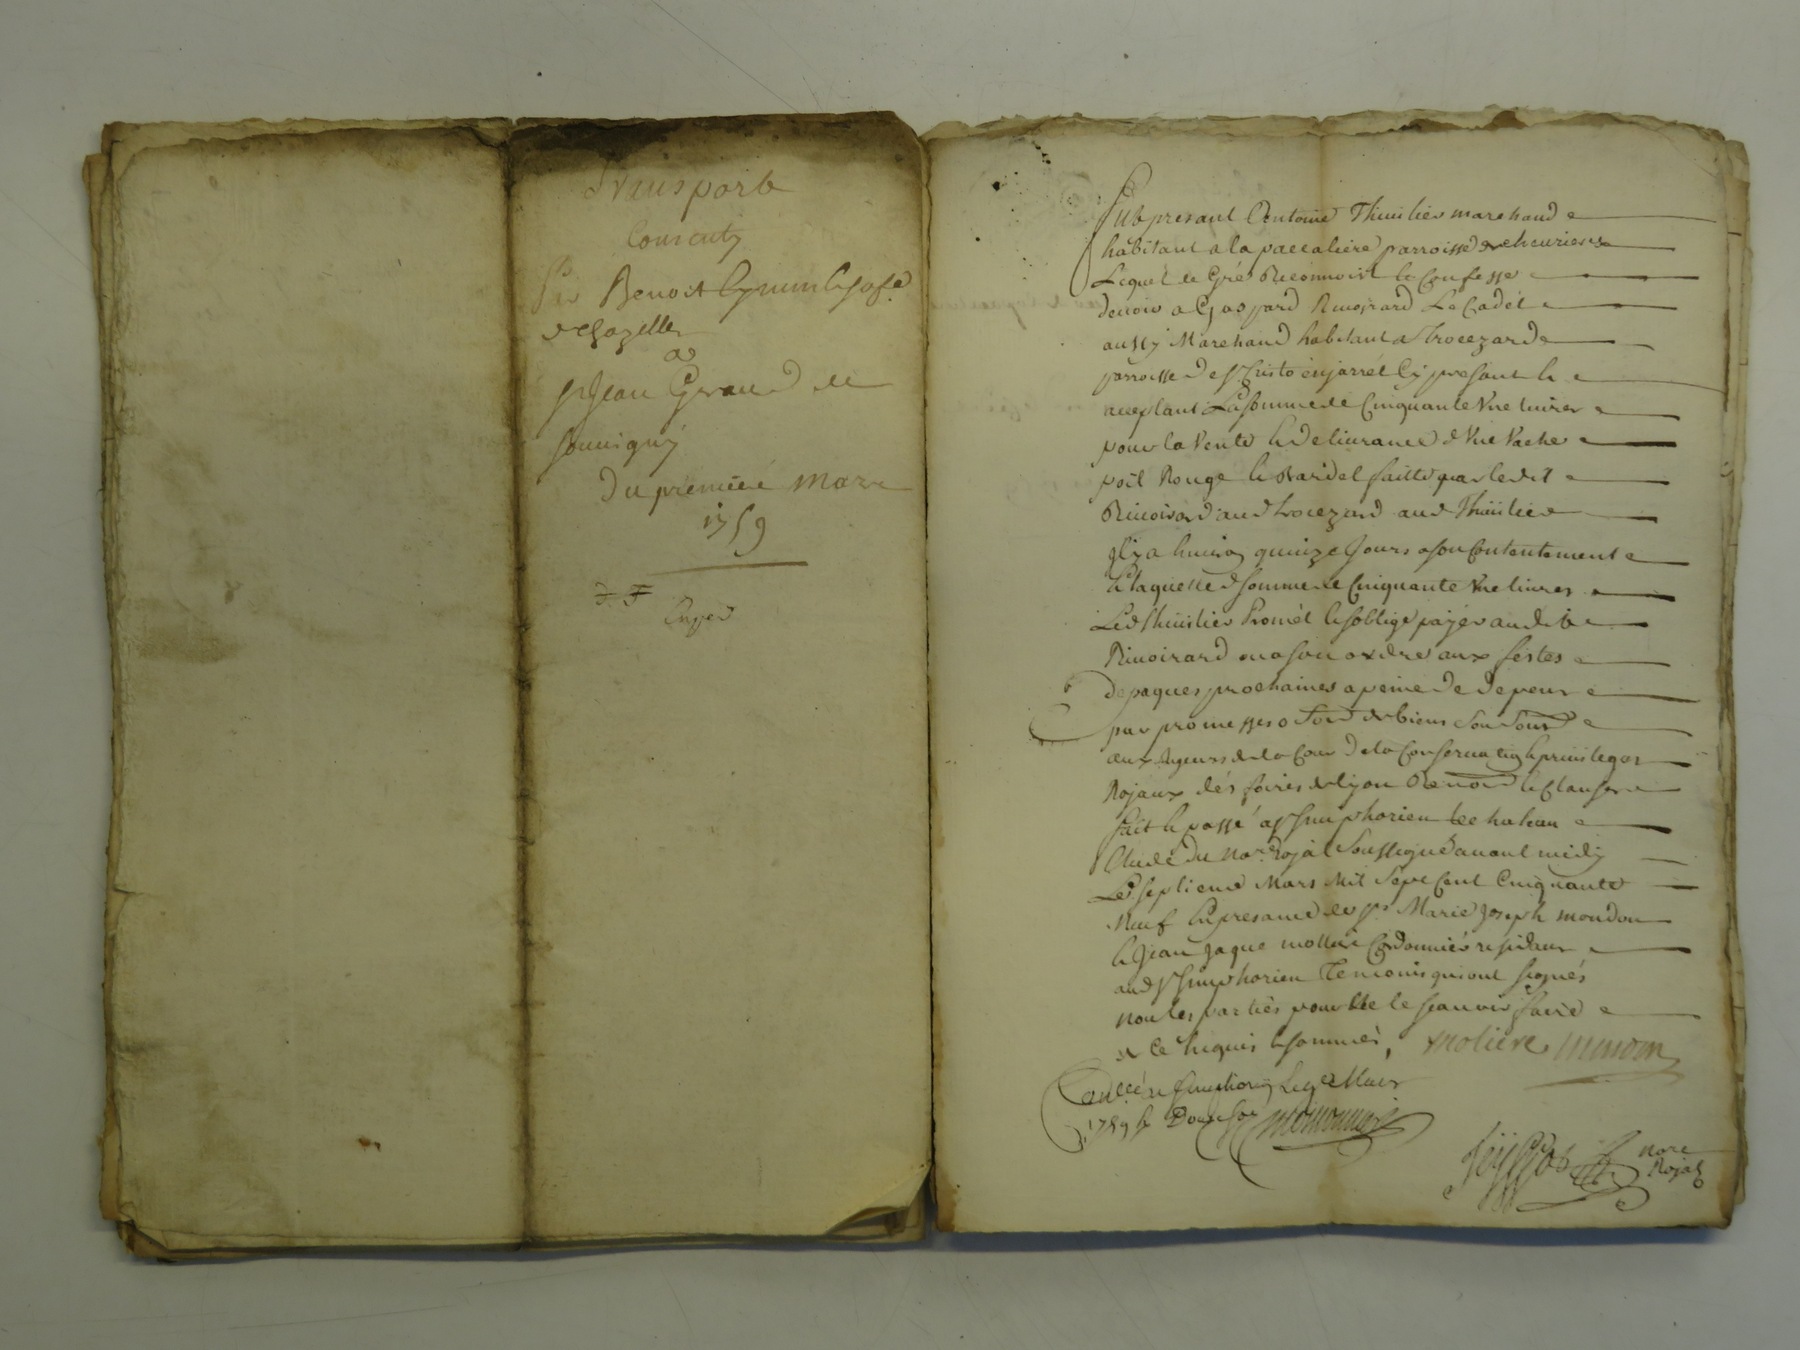 Transporte
Consenty
Par Benoit
de Chazelle
a
sr Jean Giraud de
souvigny
du premiere Mars
1759
Fut presant Antoine Thuilier marchand
habitant a la paccaliere parroisse de cheurieres
Lequel de Gre Reconnoist et Confesse
devoir a Gaspard Rinoirard Le Cadet
aussy Marchand habitant a Trocezard
parroisse de st Cristo en jarrét Cy present et
acceptant La somme de Cinquante Vne livres
pour la Vente et delivrance d'Vne Vache
poil Rouge et Bardel faitte par ledit
Rinoirard aud Trocezard aud Thuilier
Il y a huict quinze Jours a son Contentement
Et laquelle d somme de Cinquante Vne livres
Led Thuilier Promét et soblige paÿer audit
Rinoirard ou a son ordre aux festes
de paques prochaines a peine de depens
par promesses de biens
aux de la Cour de la Conservation et privileges
Rojaux dés foires de lyon Renon et Clauses
fait et passé a st Simphorien le chateau
Etude du Nore Rojal Soussigné avant midy
Le septieme Mars Mil Sept Cent Cinquante
Neuf En presance de sr Marie Joseph mondon
et Jean Jaque mollieré Cordonnier residans
aud st Simphorien Temoins qui ont signés
non les parties pour ne le scavoir faire
de ce Enquis et sommés, moliere mondon
a st Simphorien Le 9e Mars
1759
nore
Rojal